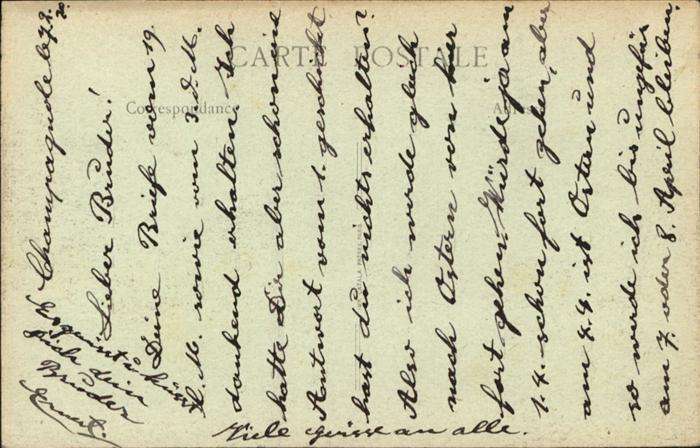 CARTE POSTALE
Correspondance
Lieber Bruder!
Deine Briefe vom 19.
d. M. sowie vom 3. d. M.
dankend erhalten. Ich
hatte Dir aber schon eine
Antwort vom 1. geschickt
hast du nichts erhalten?
Also ich werde gleich
nach Ostern von hier
fort gehen. Würde ja am
1.4. schon fort gehen, aber
am 4.4. ist Ostern und
so werde ich bis ungfür
am 7. oder 8. April bleiben.
Es grüsst u. küsst
Dich dein
Bruder
Viele grüsse an alle.